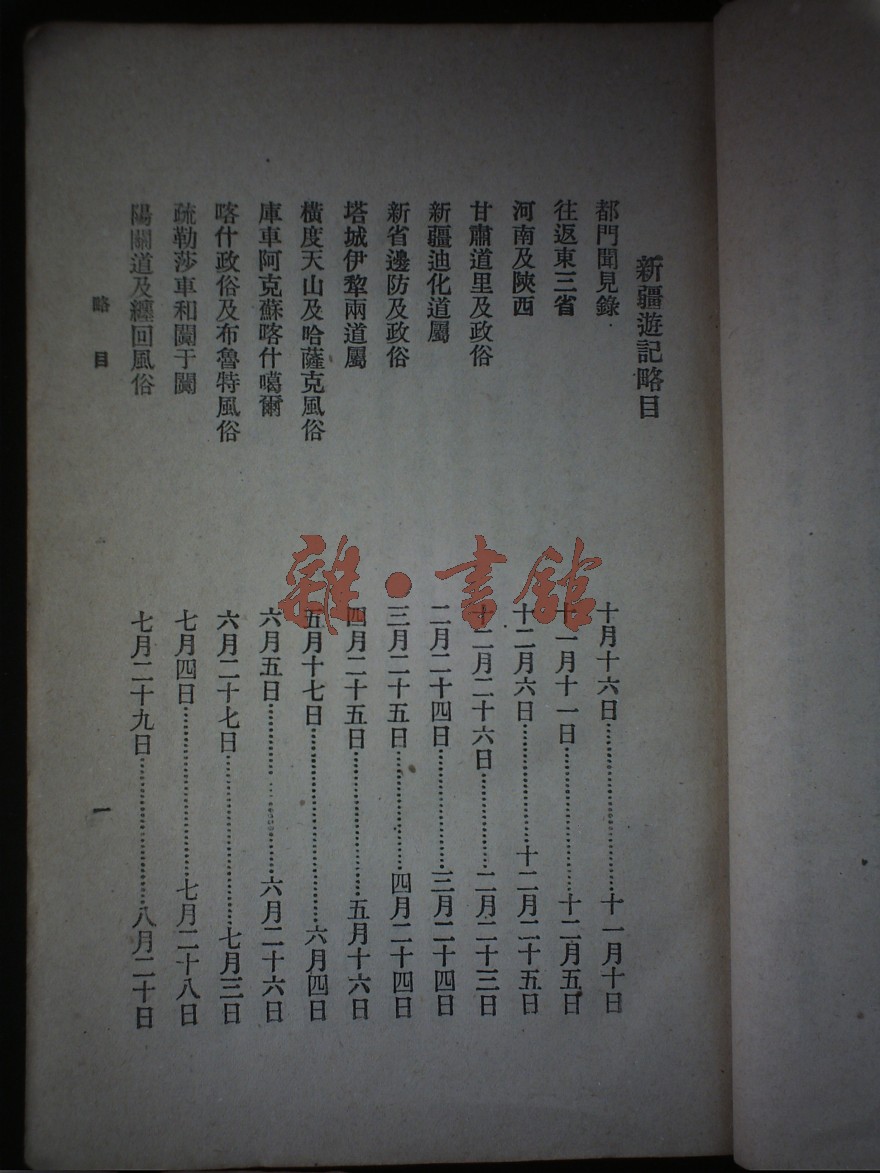 新疆遊記略目
都門聞見錄 十月十六日……十一月十日
往返東三省 十一月十一日……十二月五日
河南及陝西 十二月六日……十二月二十五日
甘肅道里及政俗 十二月二十六日……二月二十三日
新疆迪化道屬 二月二十四日……三月二十四日
新省邊防及政俗 三月二十五日……四月二十四日
塔城伊犂兩道屬 四月二十五日……五月十六日
橫度天山及哈薩克風俗 五月十七日……六月四日
庫車阿克蘇喀什噶爾 六月五日……六月二十六日
喀什政俗及布魯特風俗 六月二十七日……七月三日
疏勒莎車和闐于闐 七月四日……七月二十八日
陽關道及纏回風俗 七月二十九日……八月二十日
略目 一
雜·書館